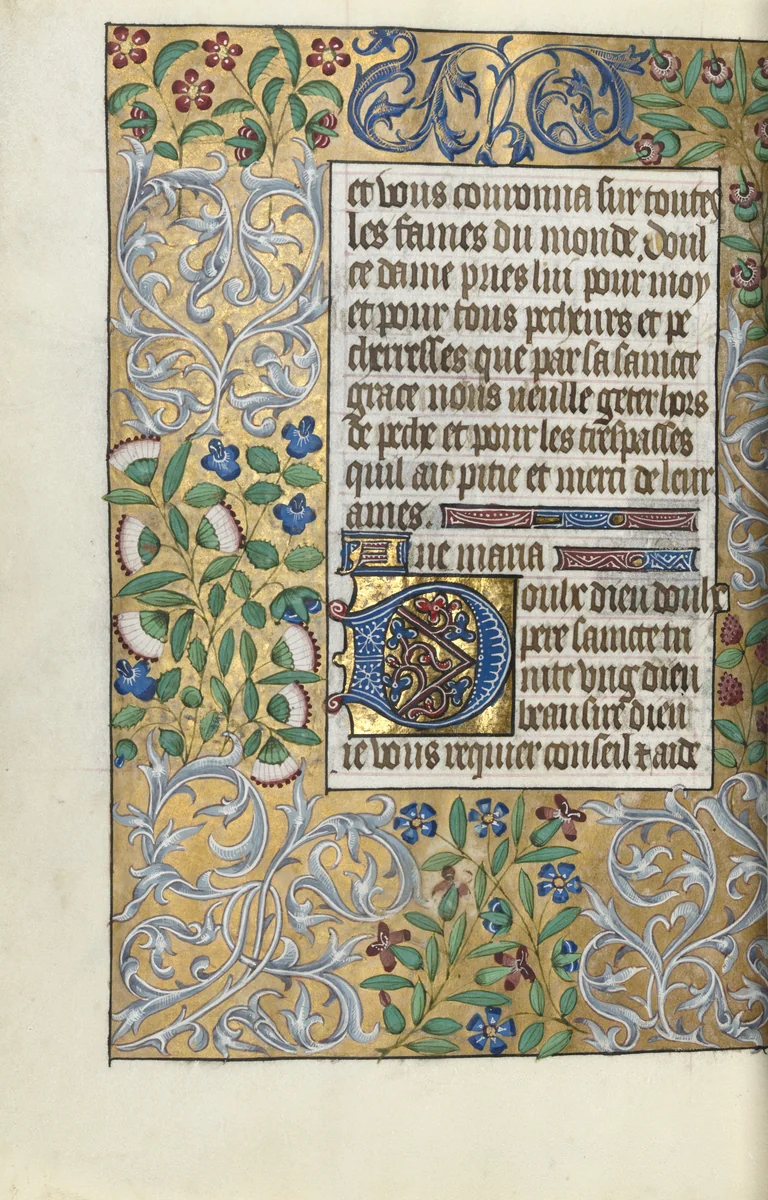 et vous couronna sur toutes
les fames du monde. doul
ce dame pries lui pour moy
et pour tous pecheurs et pe
cherresses que par sa saincte
grace nous veuille geter hors
de peche et pour les trespasses
quil ait pitie et merci de leur
ames.
Aue maria
Doulx dieu doulx
pere saincte tri
nite vng dieu
beau sire dieu
ie vous requier conseil et aide